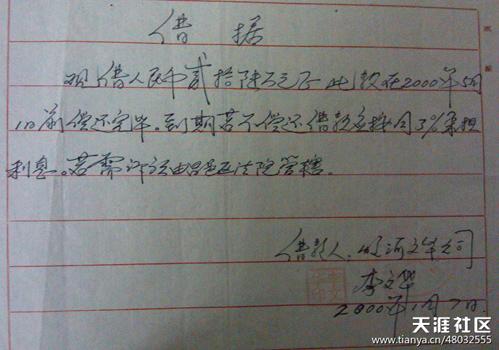 借据
现借人民币贰拾陆万元正 此款在2000年5月
1日前偿还完毕。到期若不偿还借款应按月3%承担
利息。若需诉讼由昌邑区法院管辖。
借款人：文华公司
李文华
2000年1月7日
天涯社区
www.tianya.cn/48032555